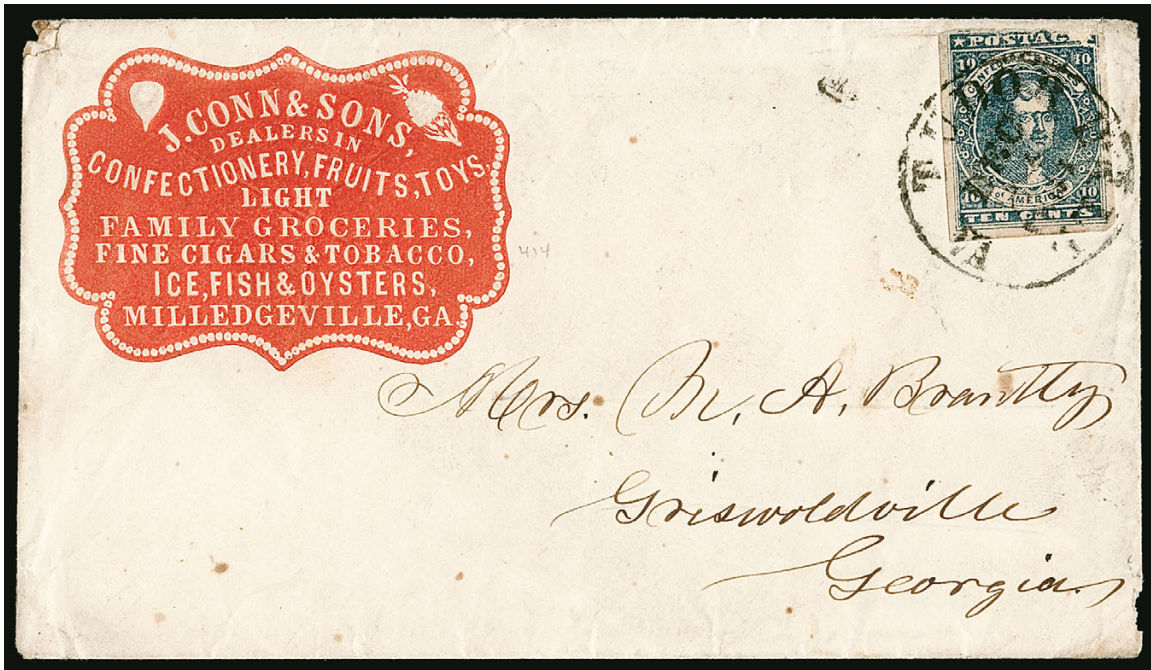 J. CONN & SONS,
DEALERS IN
CONFECTIONERY, FRUITS, TOYS,
LIGHT
FAMILY GROCERIES,
FINE CIGARS & TOBACCO,
ICE, FISH & OYSTERS,
MILLEDGEVILLE, GA.
POSTAGE
10 10
of AMERICA
10 10
TEN CENTS
414
Mrs. M. A. Brantly
Griswoldville
Georgia